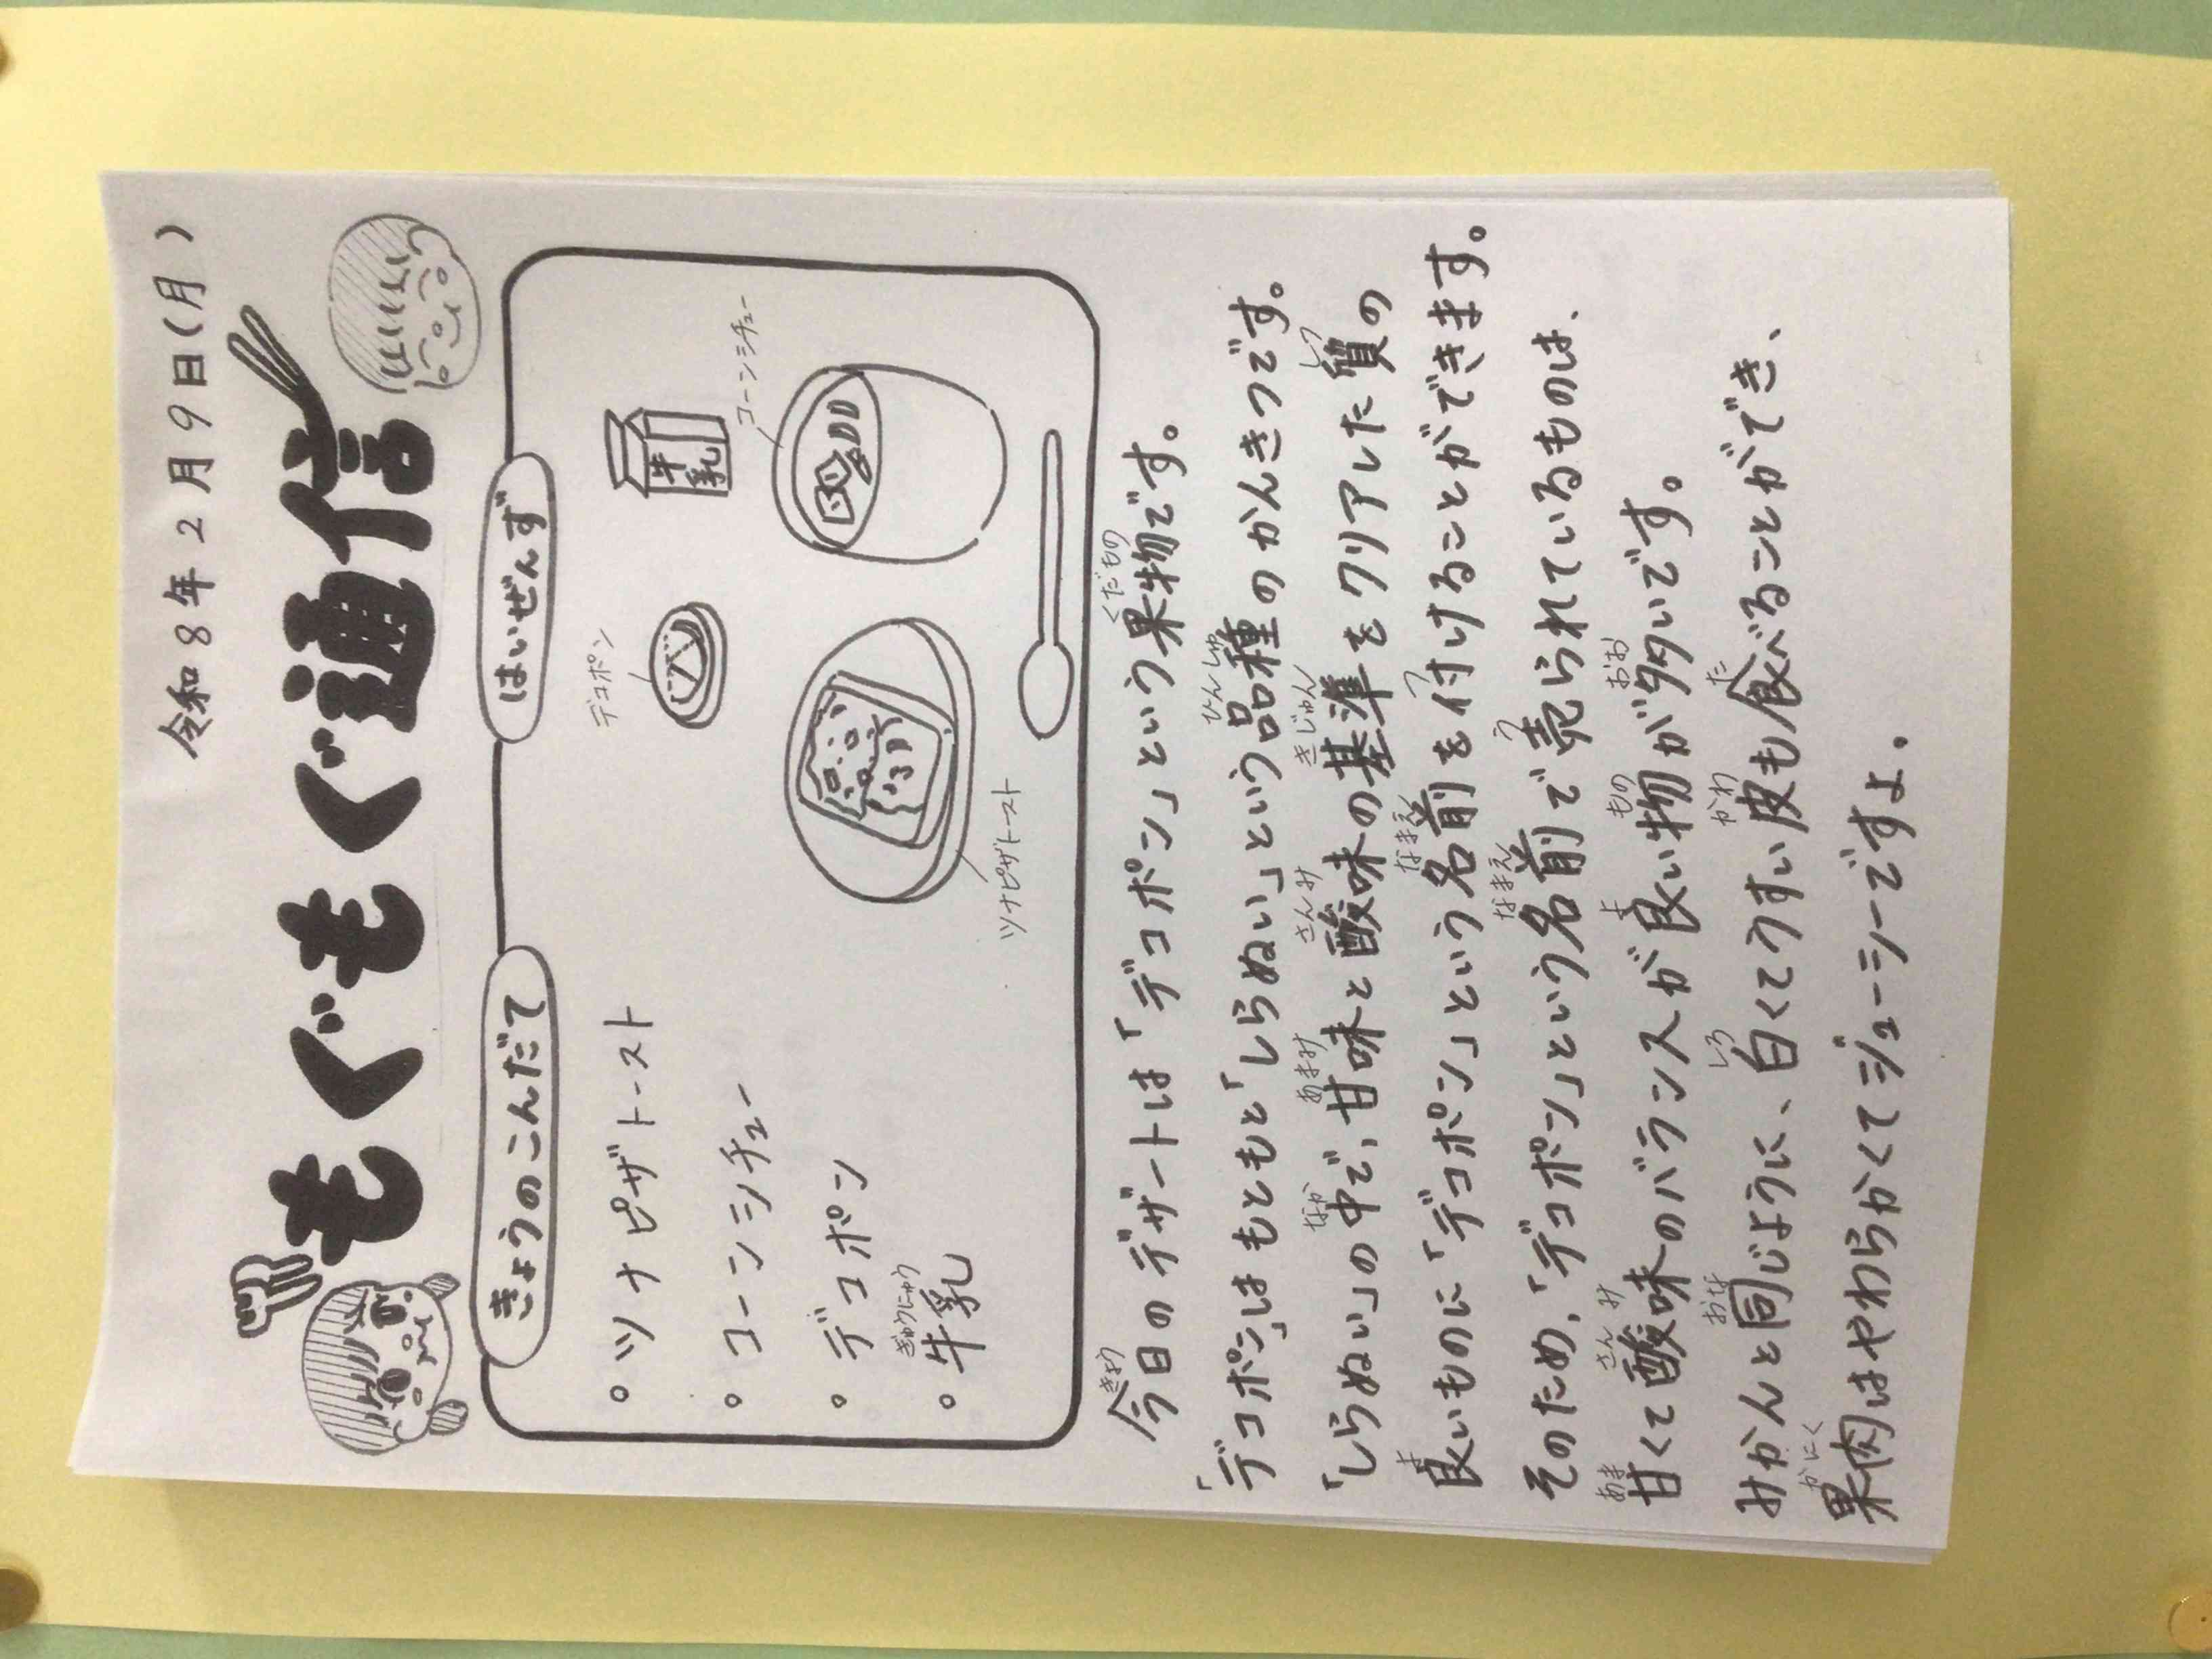 令和8年2月9日(月)
もぐもぐ通信
きょうのこんだて
はいぜんず
。ツナピザトースト
。コーンシチュー
。デコポン
ぎゅうにゅう
。牛乳
デコポン
牛乳
コーンシチュー
ツナピザトースト
きょう くだもの
今日のデザートは「デコポン」という果物です。
ひんしゅ
「デコポン」はもともと「しらぬい」という品種のかんきつです。
なか あまみ さんみ きじゅん しつ
「しらぬい」の中で、甘味と酸味の基準をクリアした質の
よ なまえ つ
良いものに「デコポン」という名前を付けることができます。
なまえ う
そのため、「デコポン」という名前で売られているものは、
あま さんみ よ もの おお
甘くて酸味のバランスが良い物が多いです。
おな しろ かわ た
みかんと同じように、白くてうすい皮も食べることができ、
かにく
果肉はやわらかくてジューシーですよ。